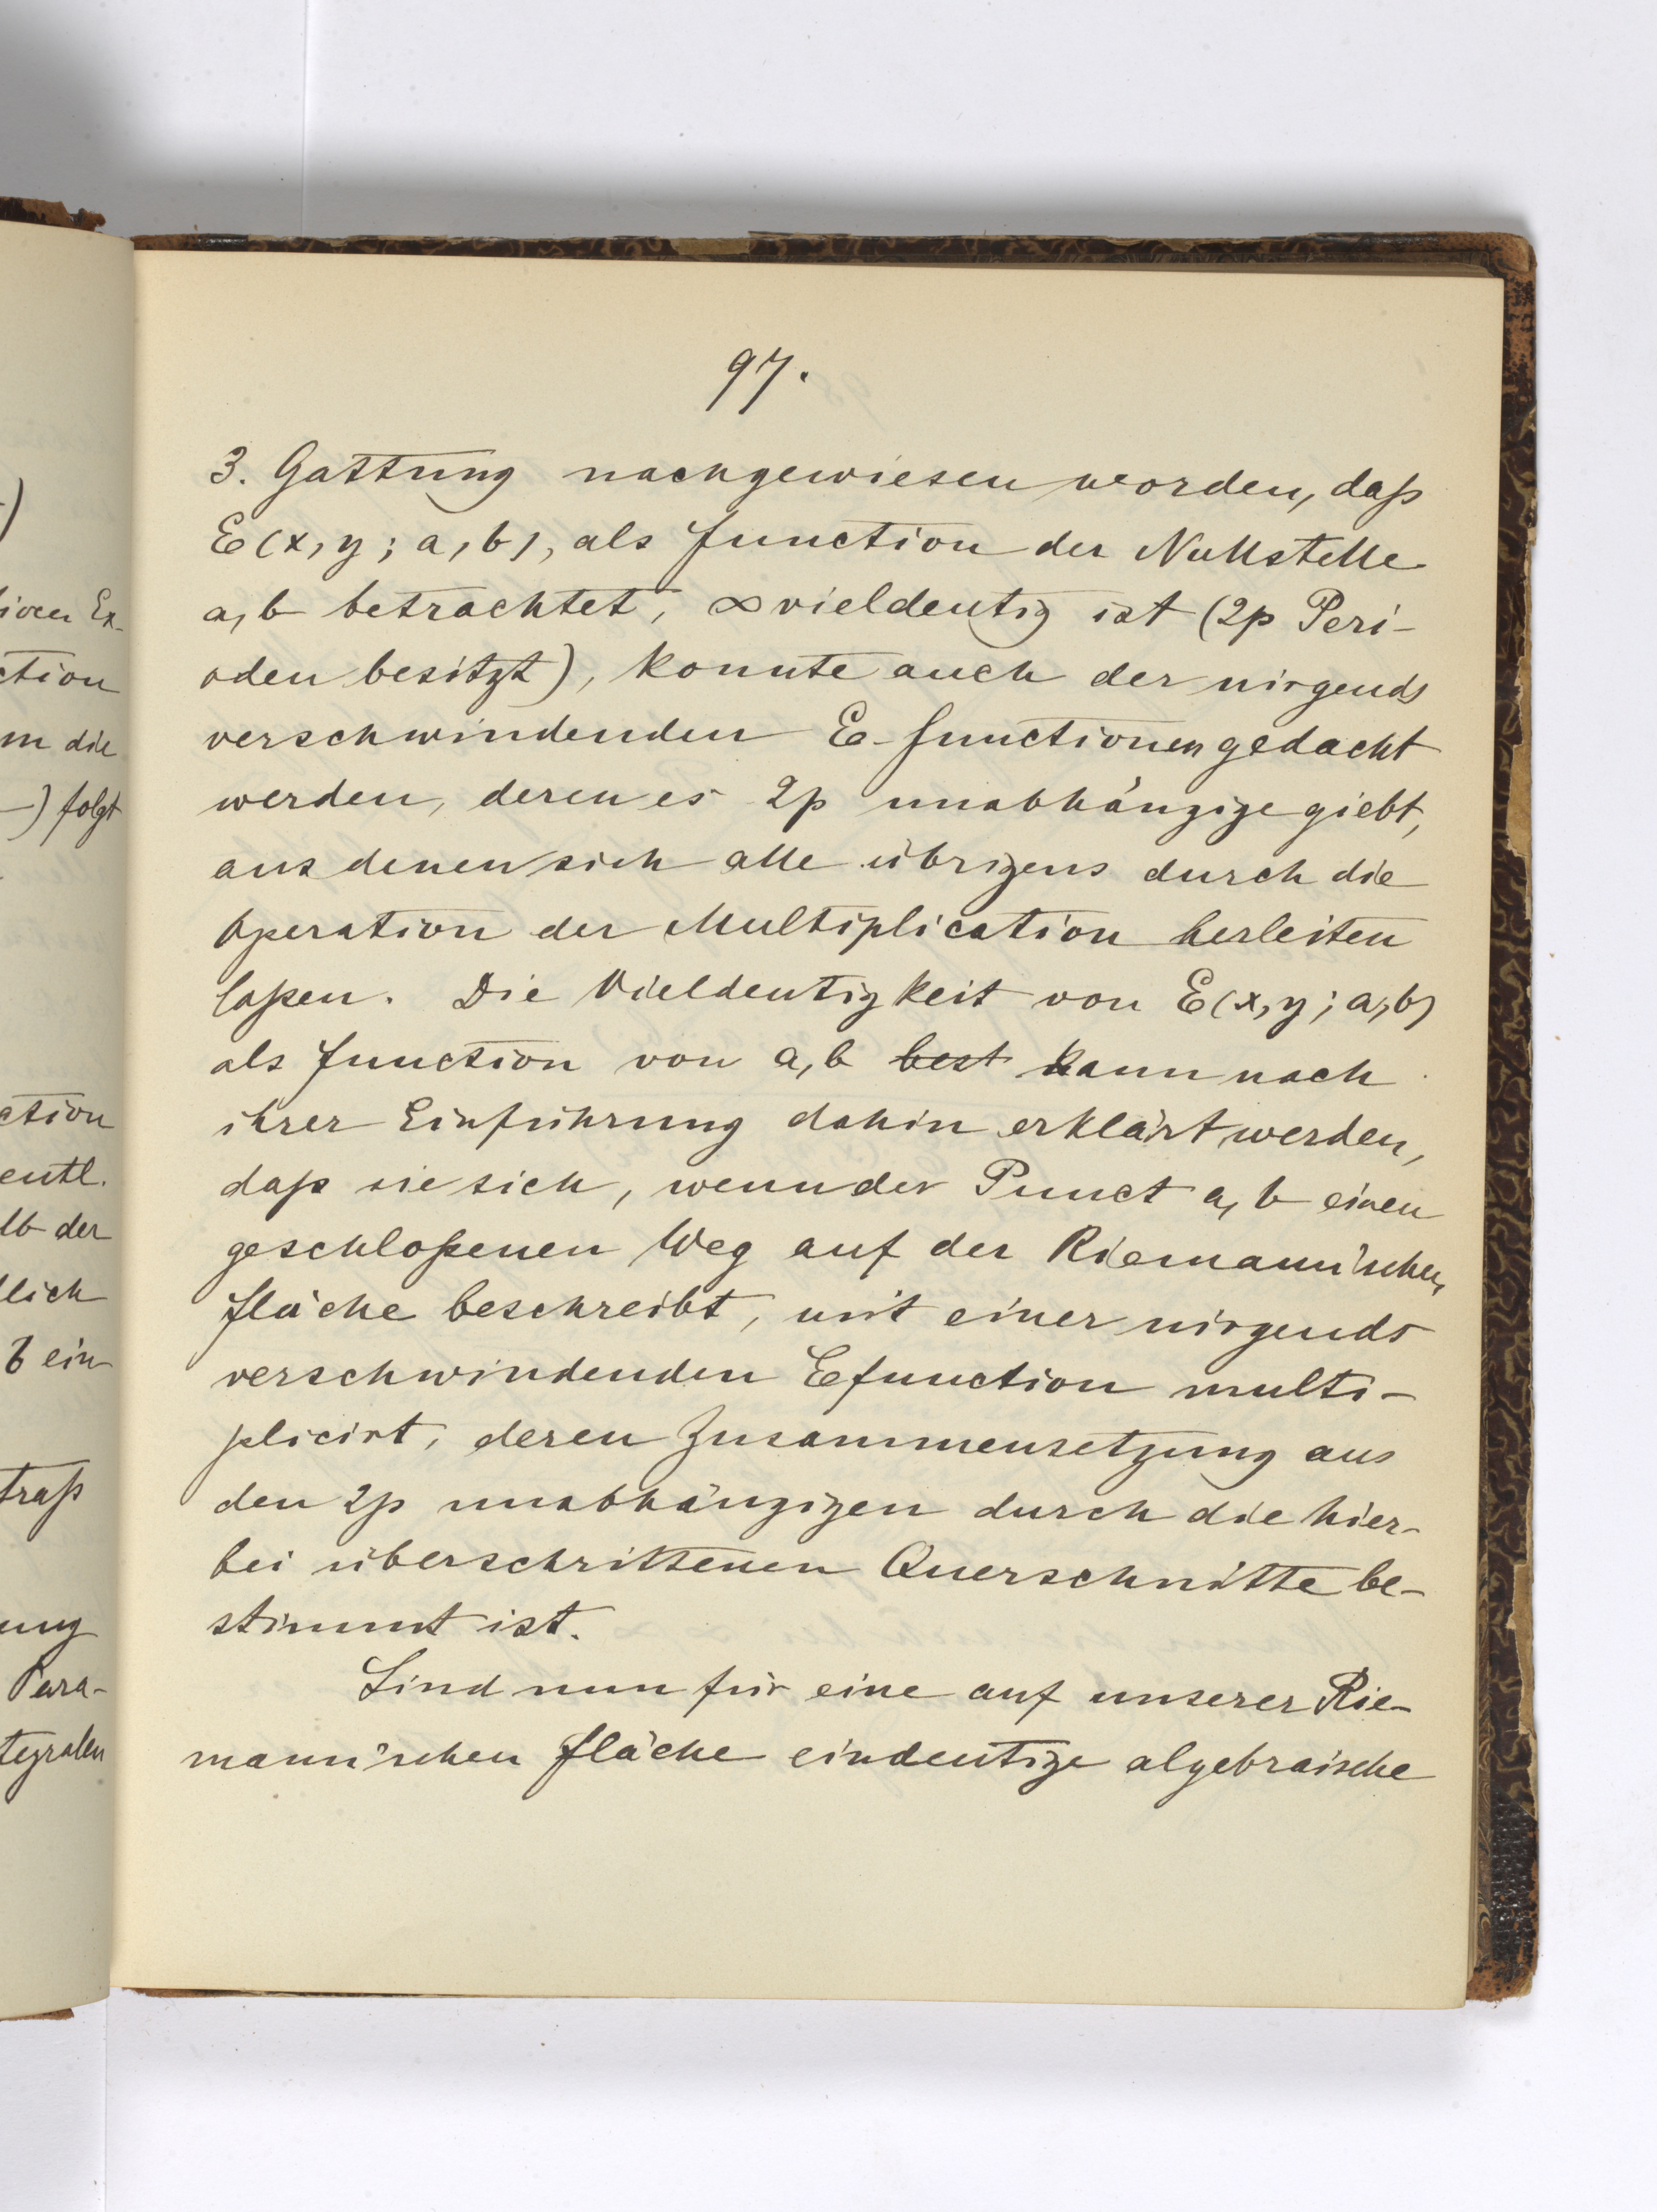 97.
3. Gattung nachgewiesen worden, daß
E(x, y; a, b), als Function der Nullstelle
a, b betrachtet, ∞ vieldeutig ist (2p Peri-
oden besitzt), konnte auch der nirgends
verschwindenden E-Functionen gedacht
werden, deren es 2p unabhängige giebt,
aus denen sich alle übrigens durch die
Operation der Multiplication herleiten
laßen. Die Vieldeutigkeit von E(x, y; a, b)
als Function von a, b best kann nach
ihrer Einführung dahin erklärt werden,
daß sie sich, wenn der Punct a, b einen
geschloßenen Weg auf der Riemann'schen
Fläche beschreibt, mit einer nirgends
verschwindenden Efunction multi-
plicirt, deren Zusammensetzung aus
den 2p unabhängigen durch die hier-
bei überschrittenen Querschnitte be-
stimmt ist.
Sind nun für eine auf unserer Rie-
mann'schen Fläche eindeutige algebraische
ction
m die
-) folgt
ction
entl.
lb der
lich
b ein
traß
ung
Para-
tegralen